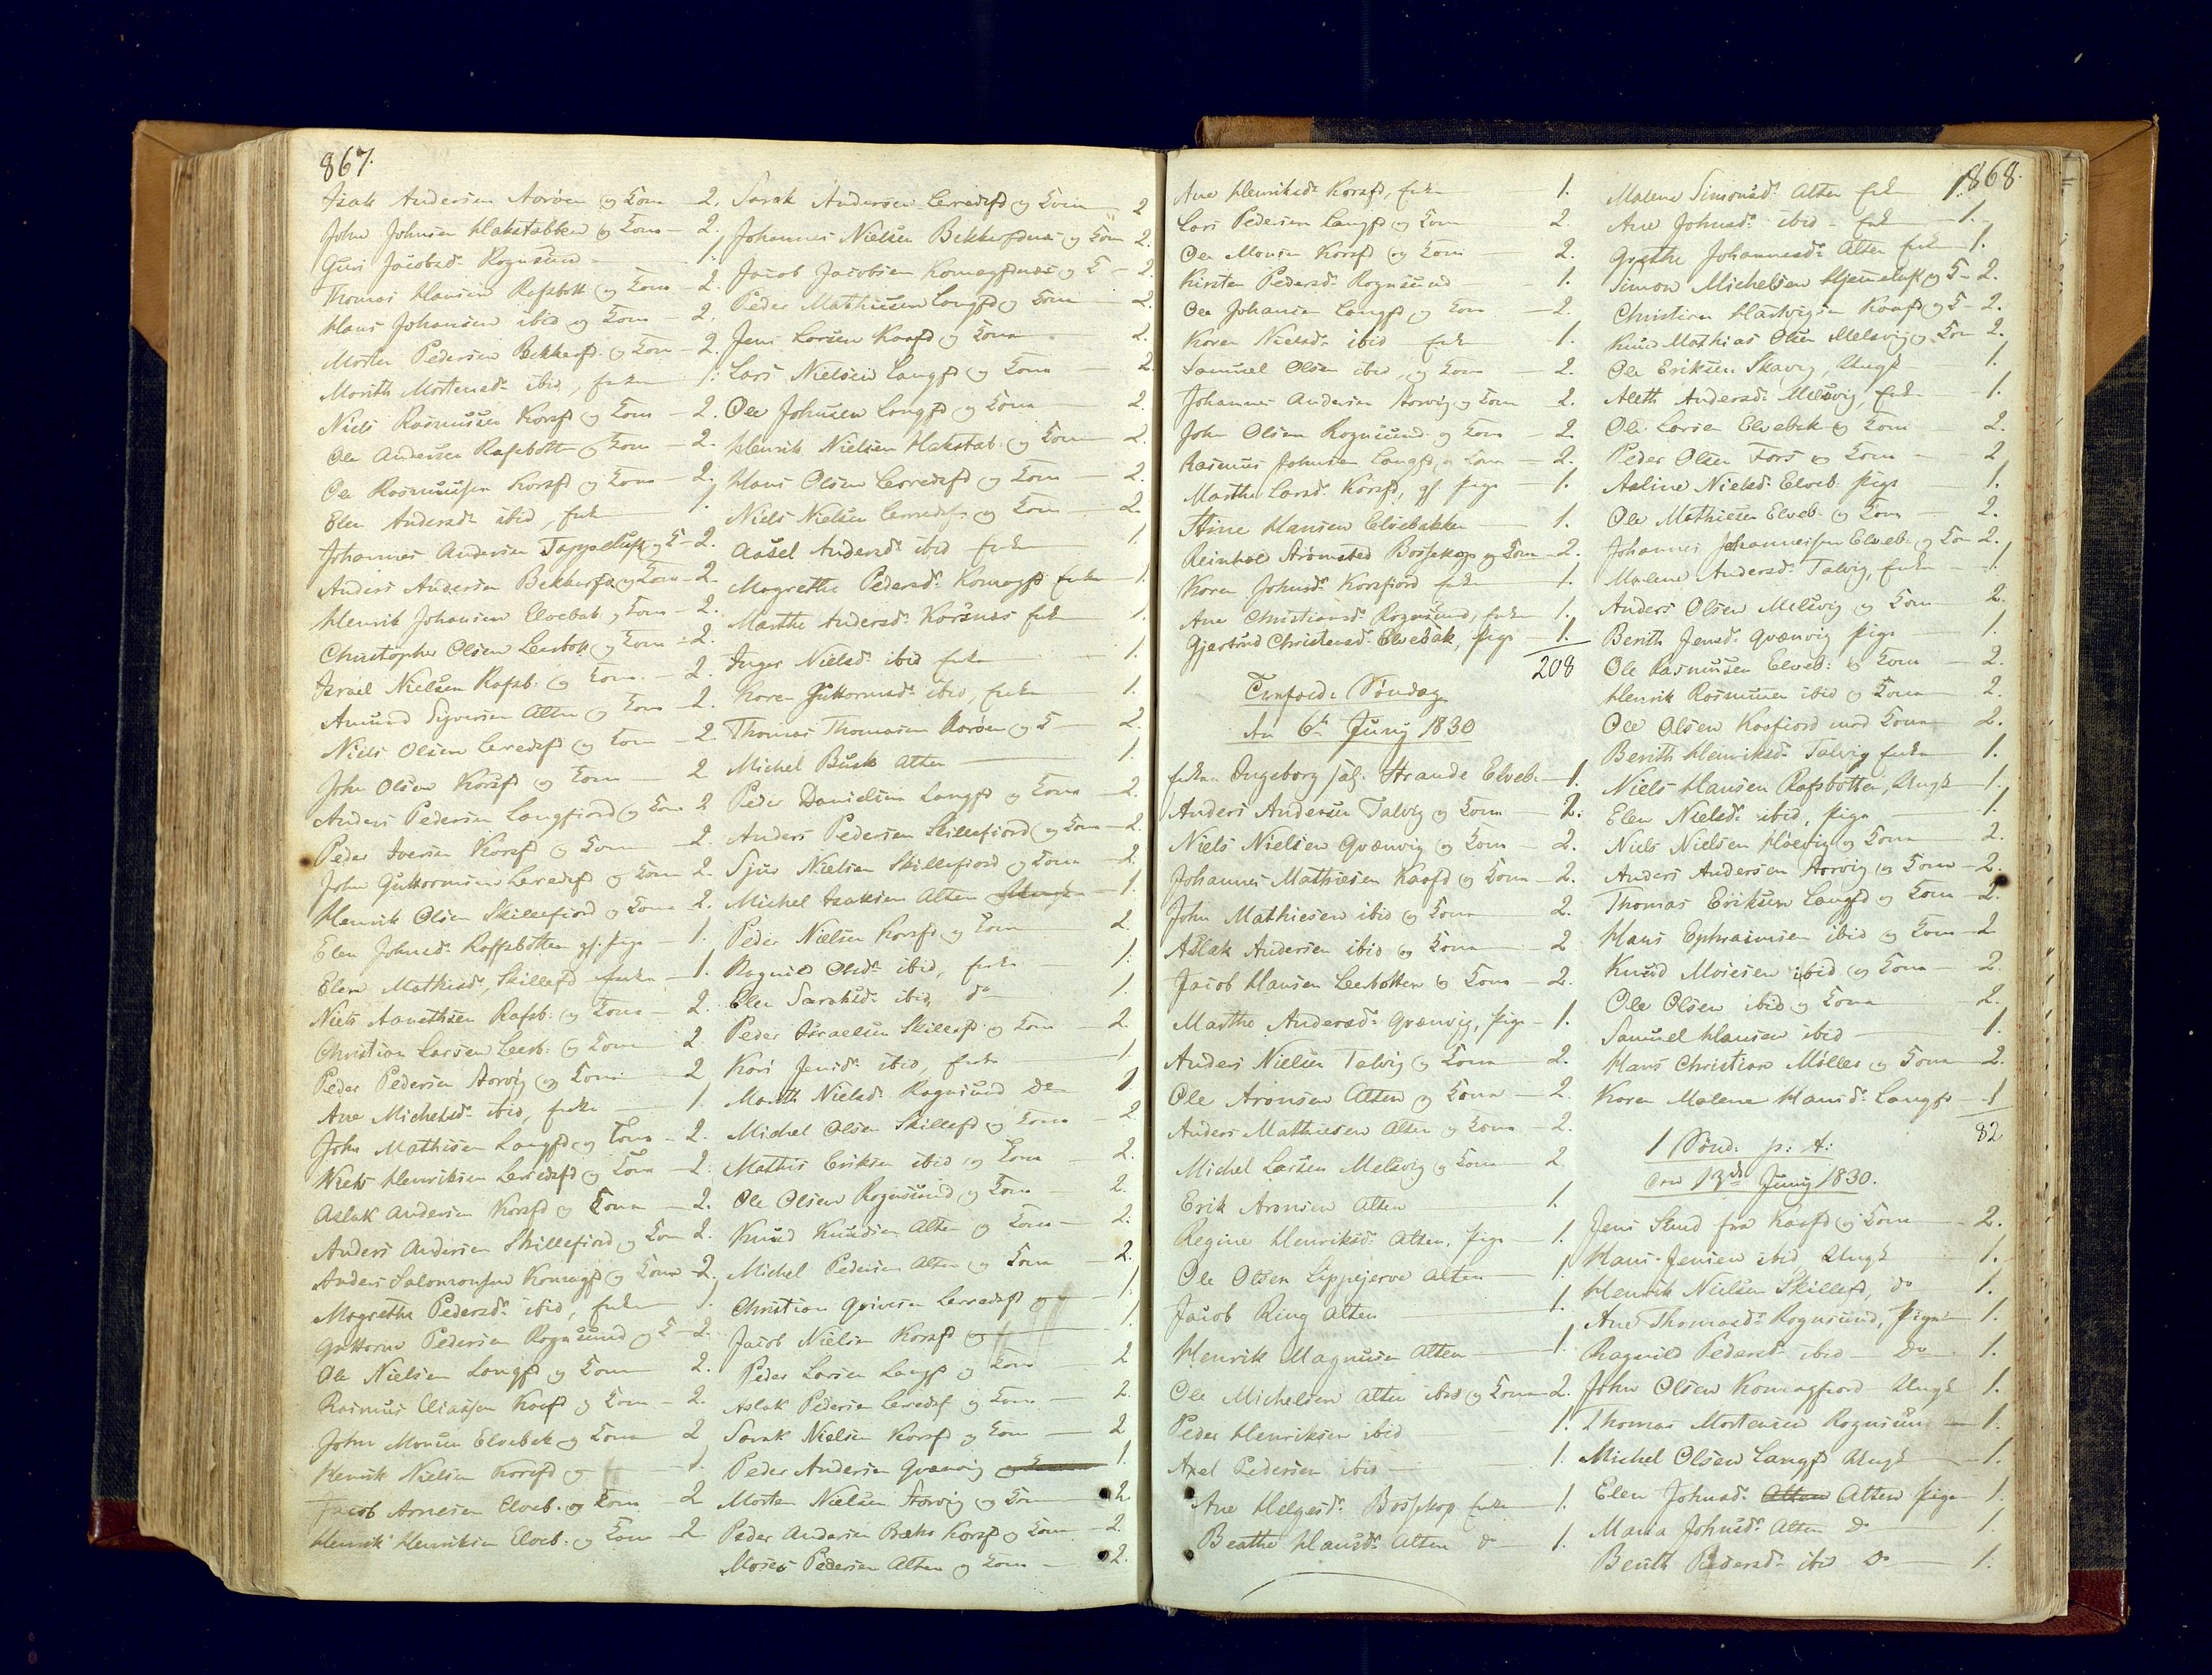 867.
Isak Andersen Aaröen og Kone - 2.
John Johnsen Hakstabben og Kone - 2.
Guri Jacobsdr Rognsund - 1.
Thomas Hansen Rafsbott og Kone - 2.
Hans Johansen ibid og Kone - 2.
Morten Pedersen Bekkerfd. og Kone - 2.
Marith Mortensdr ibid, Enke 1.
Niels Rasmussen Korsfd og Kone - 2.
Ole Andersen Rafsbotten og Kone - 2.
Ole Rasmussen Korsfd og Kone - 2.
Elen Andersdr ibid, Enke 1.
Johannes Andersen Tappeluft og K - 2.
Anders Andersen Bekkerfd og Kone - 2.
Henrik Johansen Elvebak. og Kone - 2.
Christopher Olsen Leerbott og Kone - 2.
Israel Nielsen Rafsb. og Kone - 2.
Amund Siversen Alten og Kone - 2.
Niels Olsen Lerredsfd og Kone - 2.
John Olsen Korsfd og Kone - 2
Anders Pedersen Langfiord og Kone 2
Peder Iversen Korsfd og Kone - 2.
John Guttormsen Lerredsfd og Kone 2.
Henrik Olsen Skillefiord og Kone 2.
Elen Johnsdr Raffsbotten gf. Pige - 1.
Elen Mathisdr, Skillefd Enke - 1.
Niels Aanethsen Rafsb. og Kone - 2.
Christian Larsen Leerb. og Kone 2.
Peder Pedersen Storvig og Kone - 2
Ane Michelsdr ibid, Enke 1.
John Mathisen Langfd og Kone - 2.
Niels Henriksen Lerredsfd og Kone - 2.
Aslak Andersen Korsfd og Kone - 2.
Anders Andersen Skillefiord og Kone 2.
Anders Salomonsen Komagfd og Kone - 2.
Magrethe Pedersdr ibid, Enke 1.
Guttorm Pedersen Rognsund og K - 2.
Ole Nielsen Langfd og Kone 2.
Rasmus Eliassen Kaafd og Kone - 2.
John Monsen Elvebak og Kone 2
Henrik Nielsen Korsfd og 1.
Jacob Arnesen Elveb. og Kone 2
Henrik Henriksen Elveb. og Kone - 2
Sarak Andersen Lerredsfd og Kone 2
Johannes Nielsen Bekkerfdnes og Kone 2.
Jacob Jacobsen Komagfdnæs og K - 2.
Peder Mathiesen Langfd og Kone - 2.
Jens Larsen Kaafd og Kone 2.
Lars Nielsen Langfd og Kone - 2.
Ole Johnsen Langfd og Kone 2.
Henrik Nielsen Hakstab. og Kone 2.
Hans Olsen Lerredsfd og Kone 2.
Niels Nielsen Lerredsfd og Kone - 2
Aasel Andersdr ibid Enke 1.
Magrethe Pedersdr Komagfd Enke - 1.
Marthe Andersdr Korsnæs Enke 1.
Inger Nielsdr ibid Enke 1.
Karen Guttormsdr ibid, Enke 1.
Thomas Thomasen Aaröen og K - 2.
Michel Busk Alten 1.
Peder Danielsen Langfd og Kone - 2.
Anders Pedersen Skillefiord og Kone - 2.
Sjur Nielsen Skillefiord og Kone - 2.
Michel Isaksen Alten Ungk - 1.
Peder Nielsen Korsfd og Kone 2.
Ragnild Olsdr ibid, Enke 1.
Elen Saraksdr ibid, do 1.
Peder Israelsen Skillefd og Kone - 2.
Kari Jensdr ibid, Enke 1
Marith Nielsdr Rognsund do 1.
Michel Olsen Skillefd og Kone - 2
Mathis Eriksen ibid og Kone - 2.
Ole Olsen Rognsund og Kone - 2.
Knud Knudsen Alten og Kone - 2.
Michel Pedersen Alten og Kone - 2.
Christian Lerredsfd og 1.
Jacob Nielsen Korsfd og 1.
Peder Larsen Langfd og Kone 2
Aslak Pedersen Lerredsf og Kone 2.
Sarak Nielsen Korsfd og Kone - 2
Peder Andersen Qvænvig og Kone 1.
Morten Nielsen Storvig og Kone 2.
Peder Andersen Korsfd og Kone - 2.
Moses Pedersen Alten og Kone - 2.
868.
Ane Henriksdr Korsfd, Enke 1.
Lars Pedersen Langfd og Kone 2.
Ole Monsen Korsfd og Kone 2.
Kirsten Pedersdr Rognsund 1.
Ole Johansen Langfd og Kone - 2.
Karen Nielsdr ibid Enke 1.
Samuel Olsen ibid, og Kone - 2.
Johannes Andersen Storvig og Kone 2.
John Olsen Rognsund og Kone - 2.
Rasmus Johnsen Langfd, og Kone - 2.
Marthe Larsdr Korsfd, gf. Pige - 1.
Stine Hansen Elvebakken 1.
Reinhol Strømsted Bossekop og Kone - 2.
Karen Johnsdr Korsfiord Enke 1.
Ane Christiansdr Rognsund, Enke 1.
Gjertrud Christensdr Elvebak, Pige - 1.
208
Trefold. Söndag
den 6te Junij 1830
Enken Ingeborg sal. Strande Elveb. 1.
Anders Andersen Talvig og Kone - 2.
Niels Nielsen Qvænvig og Kone - 2.
Johannes Mathiesen Kaafd og Kone - 2.
John Mathiesen ibid og Kone 2.
Aslak Andersen ibid og Kone - 2
Jacob Hansen Leerbotten og Kone - 2.
Marthe Andersdr Qvænvig, Pige - 1.
Anders Nielsen Talvig og Kone 2.
Ole Aronsen Alten og Kone - 2.
Anders Mathiesen Alten og Kone - 2.
Michel Larsen Melsvig og Kone - 2
Erik Aronsen Alten 1.
Regine Henriksdr Alten, Pige - 1.
Ole Olsen Lippejerve Alten 1.
Jacob Ring Alten 1.
Henrik Magnusen Alten 1.
Ole Michelsen Alten ibid og Kone 2.
Peder Henriksen ibid 1.
Axel Pedersen ibid 1.
Ane Helgesdr Bossekop Enke 1.
Beathe Hansdr Alten do - 1.
Malene Simonsdr Alten Enke 1.
Ane Johnsdr ibid - Enke - 1.
Grethe Johannesdr Alten Enke 1.
Simon Michelsen Hjemeluft og K - 2.
Christian Hartvigsen Kaafd og K - 2.
Knud Mathias Olsen Melsvig og Kone 2.
Ole Eriksen Skavig, Ungk - 1.
Aleth Andersdr Melsvig, Enke - 1.
Ole Larsen Elvebak og Kone 2.
Peder Olsen Fors og Kone - 2
Aaline Nielsdr Elveb. Pige 1.
Ole Mathiesen Elveb. og Kone 2.
Johannes Johannessen Elveb. og Kone 2.
Malene Andersdr Talvig, Enke - 1.
Anders Olsen Melsvig og Kone 2.
Berith Jensdr Qvænvig Pige 1.
Ole Rasmussen Elveb: og Kone - 2.
Henrik Rasmussen ibid og Kone 2.
Ole Olsen Kaafiord med Kone 2.
Berith Henriksdr Talvig Enke 1.
Niels Hansen Rafsbotten, Ungk - 1.
Elen Nielsdr ibid, Pige - 1.
Niels Nielsen og Kone 2.
Anders Andersen Storvig og Kone - 2.
Thomas Eriksen Langfd og Kone - 2.
Hans Ephraimsen ibid og Kone - 2
Knud Mosesen ibid og Kone - 2.
Ole Olsen ibid og Kone - 2.
Samuel Hansen ibid - 1.
Hans Christian Möller og Kone - 2.
Karen Malene Hansdr Langfd - 1
82
1 Sönd. p: t:
den 13de Junij 1830.
Jens Stud fra Kaafd og Kone - 2.
Hans Jensen ibid Ungk 1.
Henrik Nielsen Skillefd, do 1.
Ane Thomasdr Rognsund, Pige 1.
Ragnild Pedersdr ibid do 1.
John Olsen Komagfiord Ungk 1.
Thomas Mortensen Rognsund 1.
Michel Olsen Langfd Ungk - 1.
Elen Johnsdr Alten Alten Pige 1.
Maria Johnsdr Alten do 1.
Berith Pedersdr ibid do 1.